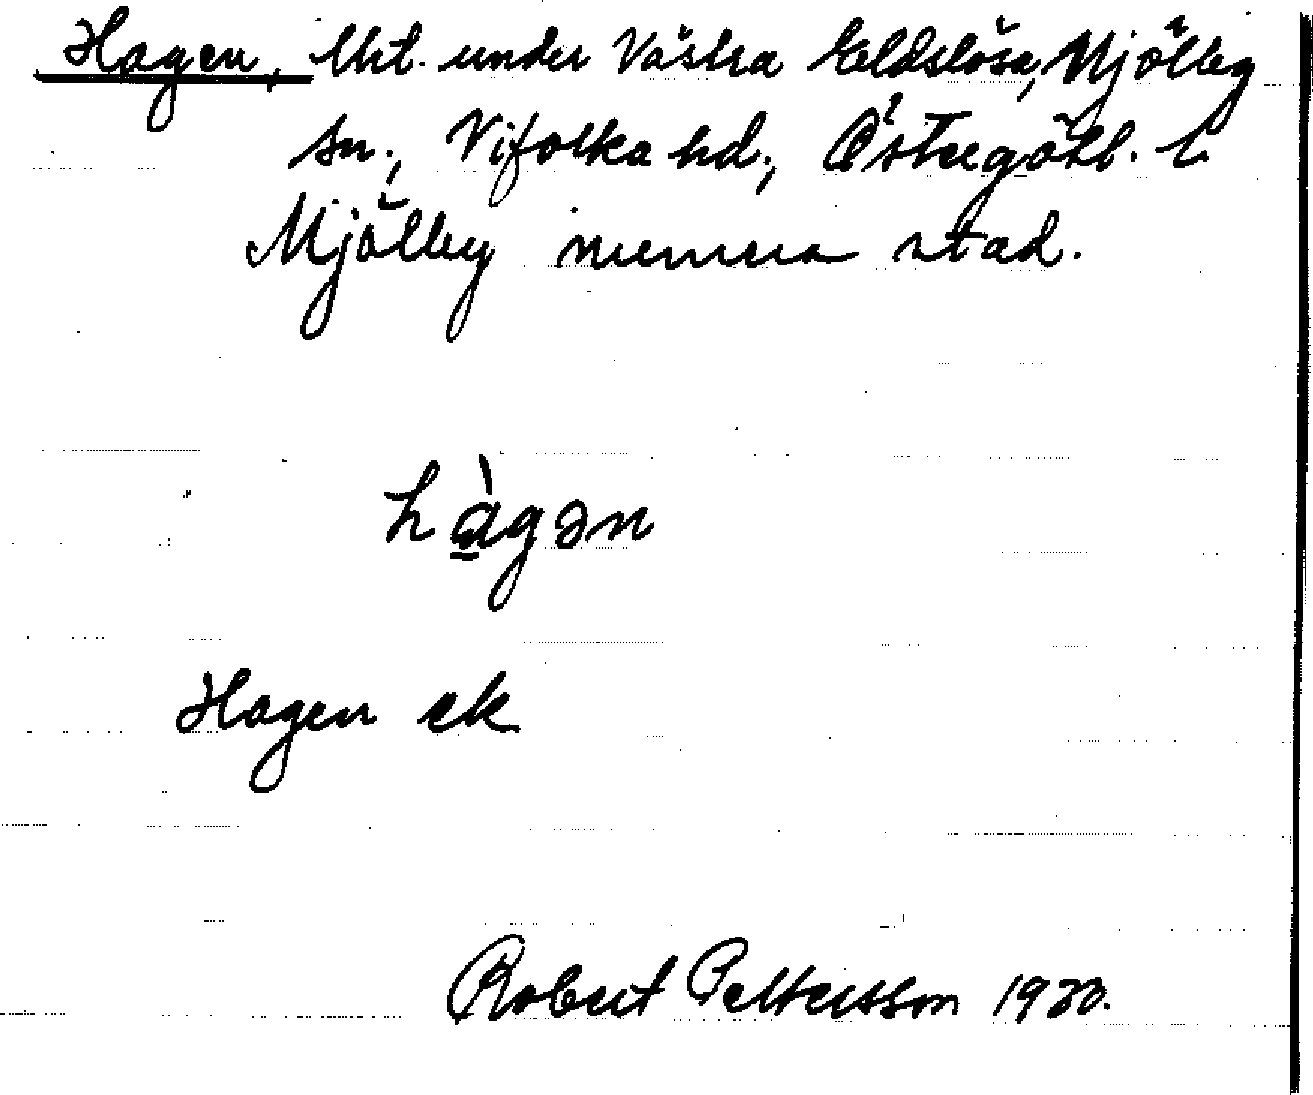 Hagen, lht. under Västra Eldslösa, Mjölby
sn., Vifolka hd., Östergötl. l.
Mjölby numera stad.
hàgən
Hagen ek
Robert Pettersson 1930.